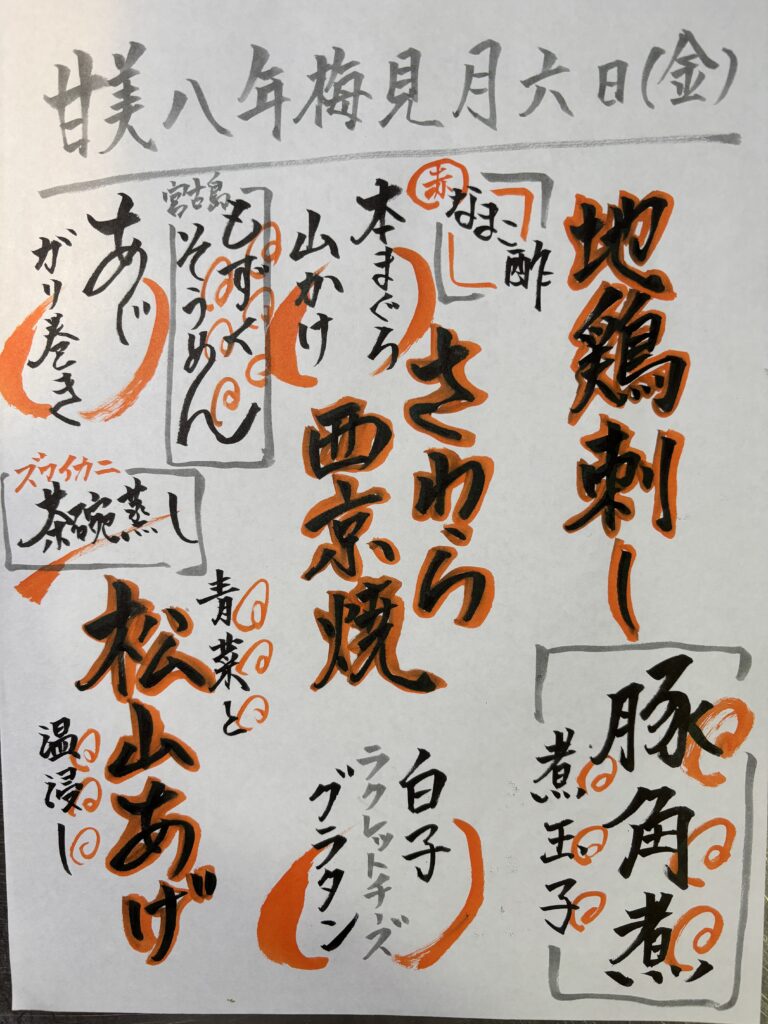 甘美八年梅見月六日(金)
地鶏刺し
豚角煮
煮玉子
赤なまこ酢
さわら
西京焼
本まぐろ
山かけ
白子
ラクレットチーズ
グラタン
宮古島
もずく
そうめん
あじ
ガリ巻き
ズワイカニ
茶碗蒸し
青菜と
松山あげ
温浸し